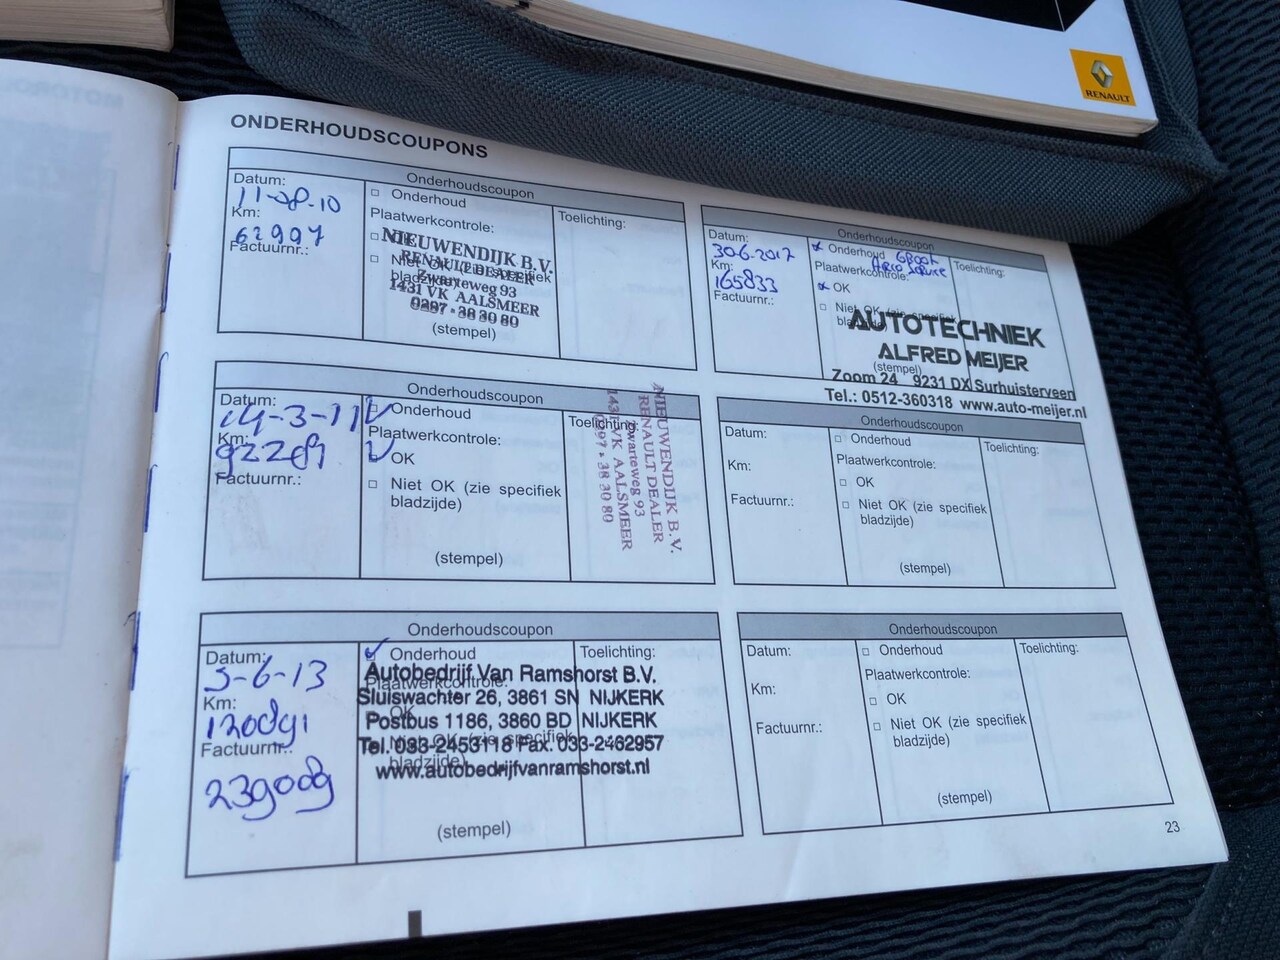 RENAULT
ONDERHOUDSCOUPONS
Onderhoudscoupon
Datum:
11-08-10
Km:
62997
Factuurnr.:
Onderhoud
Plaatwerkcontrole:
Toelichting:
NIEUWENDIJK B.V.
RENAULT DEALER
Zwarteweg 93
1431 VK AALSMEER
0297 - 38 30 80
(stempel)
Onderhoudscoupon
Datum:
14-3-11
Km:
92289
Factuurnr.:
Onderhoud
Plaatwerkcontrole:
OK
Niet OK (zie specifiek
bladzijde)
(stempel)
Toelichting:
NIEUWENDIJK B.V.
RENAULT DEALER
Zwarteweg 93
1431 VK AALSMEER
0297 - 38 30 80
Onderhoudscoupon
Datum:
5-6-13
Km:
120891
Factuurnr.:
239089
Onderhoud
Plaatwerkcontrole:
OK
Niet OK (zie specifiek
bladzijde)
Toelichting:
Autobedrijf Van Ramshorst B.V.
Sluiswachter 26, 3861 SN NIJKERK
Postbus 1186, 3860 BD NIJKERK
Tel. 033-2453118 Fax. 033-2462957
www.autobedrijfvanramshorst.nl
(stempel)
Onderhoudscoupon
Datum:
30-6-2017
Km:
165833
Factuurnr.:
Onderhoud
Plaatwerkcontrole:
OK
Niet OK (zie specifiek
bladzijde)
Toelichting:
AUTOTECHNIEK
ALFRED MEIJER
(stempel)
Zoom 24 9231 DX Surhuisterveen
Tel.: 0512-360318 www.auto-meijer.nl
Onderhoudscoupon
Datum:
Km:
Factuurnr.:
Onderhoud
Plaatwerkcontrole:
OK
Niet OK (zie specifiek
bladzijde)
(stempel)
Toelichting:
Onderhoudscoupon
Datum:
Km:
Factuurnr.:
Onderhoud
Plaatwerkcontrole:
OK
Niet OK (zie specifiek
bladzijde)
(stempel)
Toelichting:
23